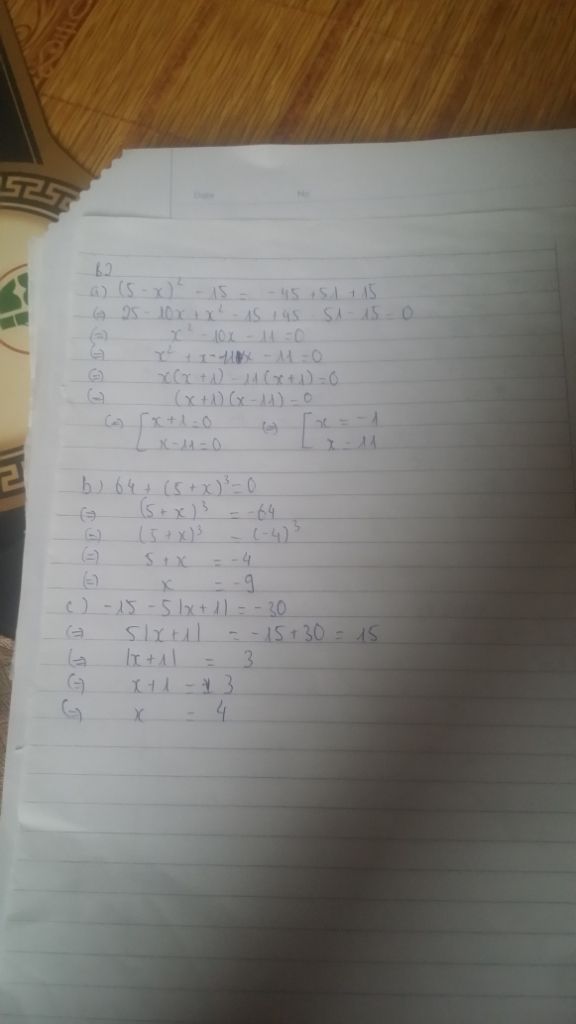 Date No
b2
a) (5-x)² - 15 = -45 + 51 + 15
(=) 25 - 10x + x² - 15 + 45 - 51 - 15 = 0
(=) x² - 10x - 11 = 0
(=) x² + x - 11x - 11 = 0
(=) x(x+1) - 11(x+1) = 0
(=) (x+1)(x-11) = 0
(=) [x+1=0 (=) [x = -1
x-11=0 x = 11
b) 64 + (5+x)³ = 0
(=) (5+x)³ = -64
(=) (5+x)³ = (-4)³
(=) 5+x = -4
(=) x = -9
c) -15 - 5|x+1| = -30
(=) 5|x+1| = -15+30 = 15
(=) |x+1| = 3
(=) x+1 = 3
(=) x = 4